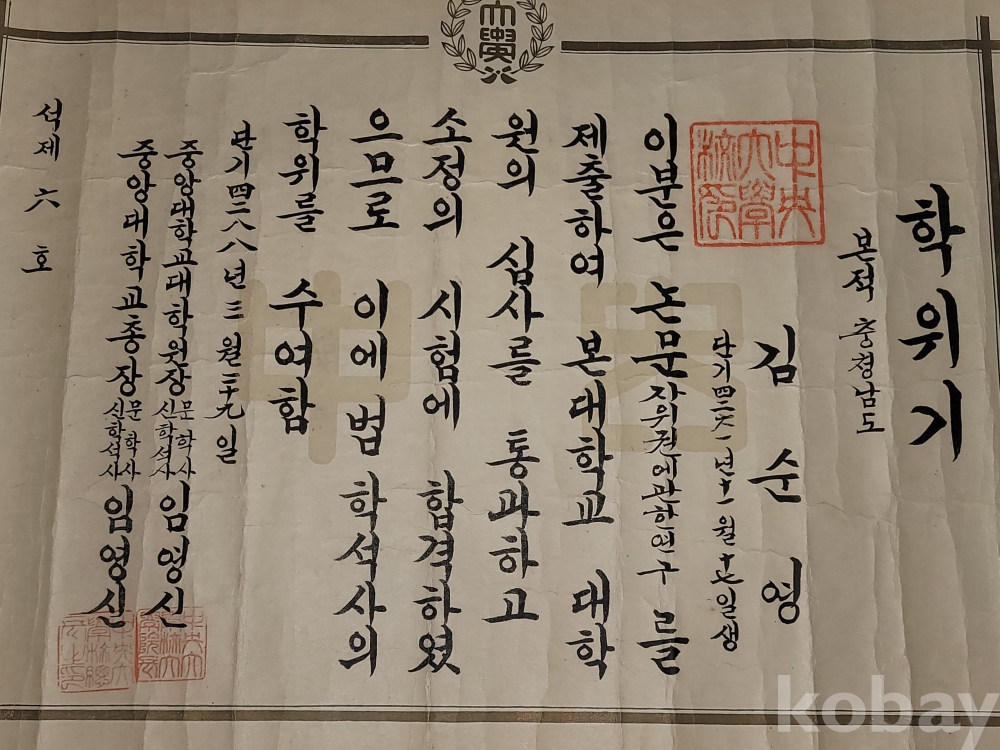 大學
학위기
본적 충청남도
김순영
단기四二六一년十一월十七일생
中央大學校印
이분은 논문 자위권에관한연구 를
제출하여 본대학교 대학
원의 심사를 통과하고
소정의 시험에 합격하였
으므로 이에 법학석사의
학위를 수여함
단기四二八八년三월二十九일
중앙대학교대학원장 문학사 신학석사 임영신
중앙대학교총장 문학사 신학석사 임영신
석제六호
kobay